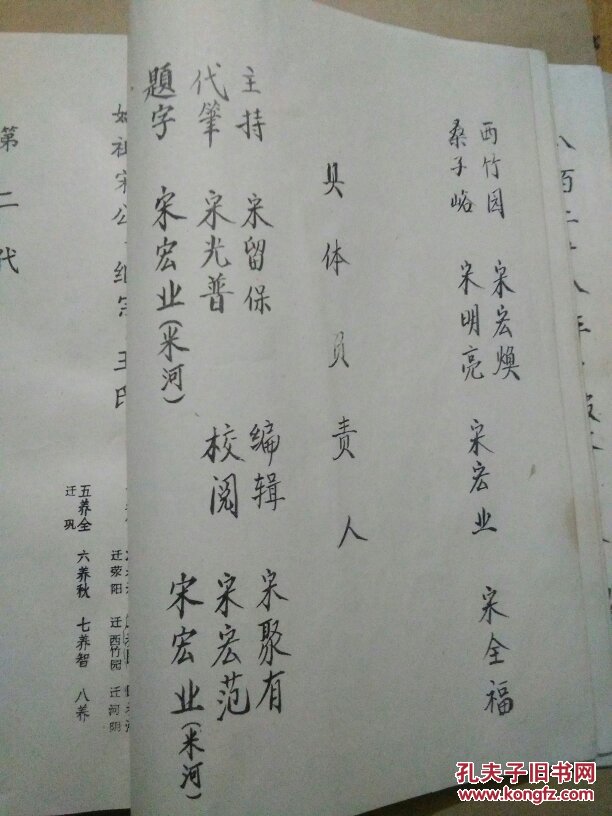 西竹园 宋宏焕 宋宏业 宋全福
桑子峪 宋明亮
具体负责人
主持 宋留保 编辑 宋聚有
代笔 宋光普 校阅 宋宏范
题字 宋宏业(米河) 宋宏业(米河)
第二代
五养全 六养秋 七养智 八养
迁巩
迁荥阳 迁西竹园 迁河阴
孔夫子旧书网
www.kongfz.com